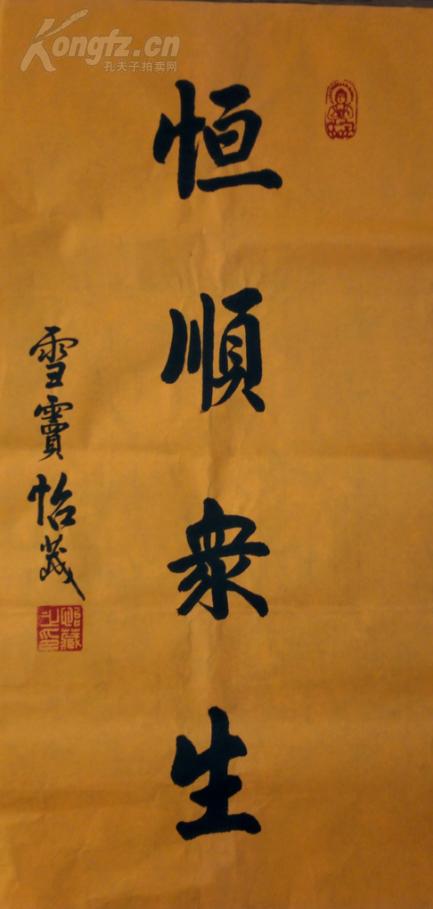 Kongfz.cn
孔夫子拍卖网
恒順衆生
雪竇怡藏
怡藏之印